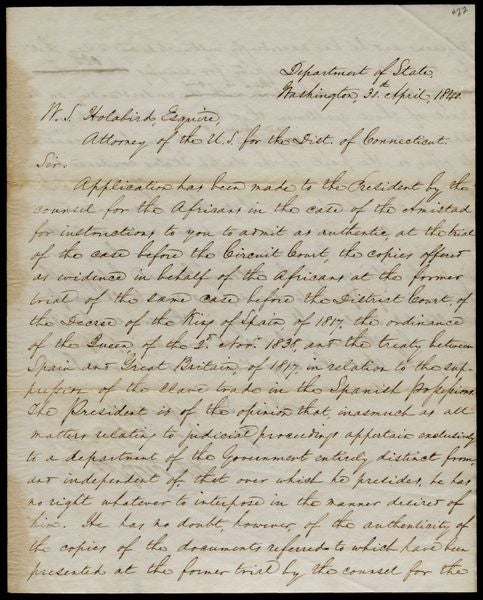 Department of State,
Washington, 3d. April, 1840.
W. S. Holabird Esquire,
Attorney of the U.S. for the Dist. of Connecticut.
Sir.
Application has been made to the President by the
counsel for the Africans in the case of the Amistad
for instructions to you to admit as authentic, at the trial
of the case before the Circuit Court, the copies offered
as evidence in behalf of the Africans at the former
trial of the same case before the District Court, of
the Decree of the King of Spain, of 1817, the ordinance
of the Queen of the 2d. Novr. 1838, and the treaty between
Spain and Great Britain, of 1817, in relation to the sup-
pression of the slave trade in the Spanish Possessions.
The President is of the opinion that, inasmuch as all
matters relating to judicial proceedings appertain exclusively
to a department of the Government entirely distinct from,
and independent of that over which he presides, he has
no right whatever to interpose in the manner desired of
him. He has no doubt, however, of the authenticity of
the copies of the documents referred to which have been
presented at the former trial by the counsel for the